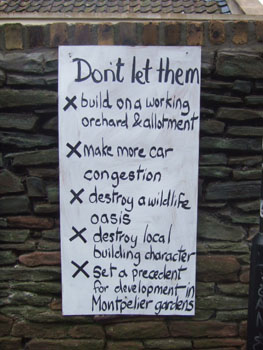 Don't let them
x build on a working
orchard & allotment
x make more car
congestion
x destroy a wildlife
oasis
x destroy local
building character
x set a precedent
for development in
Montpelier gardens